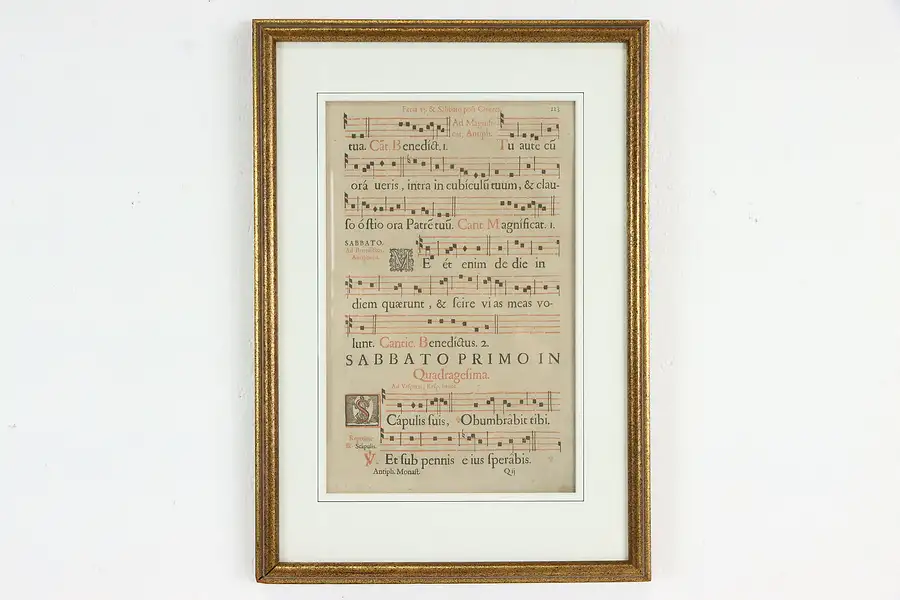 Feria vj. & Sabbato post Cineres. 113
Ad Magnifi-
cat. Antiph.
tua. Cãt. Benedict. 1. Tu aute cũ
orá ueris, intra in cubículũ tuum, & clau-
so óstio ora Patrẽ tuũ. Cant. Magníficat. 1.
SABBATO.
Ad Benedictus.
Antiphona.
ME ét enim de die in
diem quærunt, & scire vias meas vo-
lunt. Cantic. Benedictus. 2.
SABBATO PRIMO IN
Quadragesima.
Ad Vesperas, Resp. breve.
SCápulis suis, Obumbrábit tibi.
Repetitur
Scápulis.
℣. Et sub pennis eius sperábis.
Antiph. Monast. Q ij